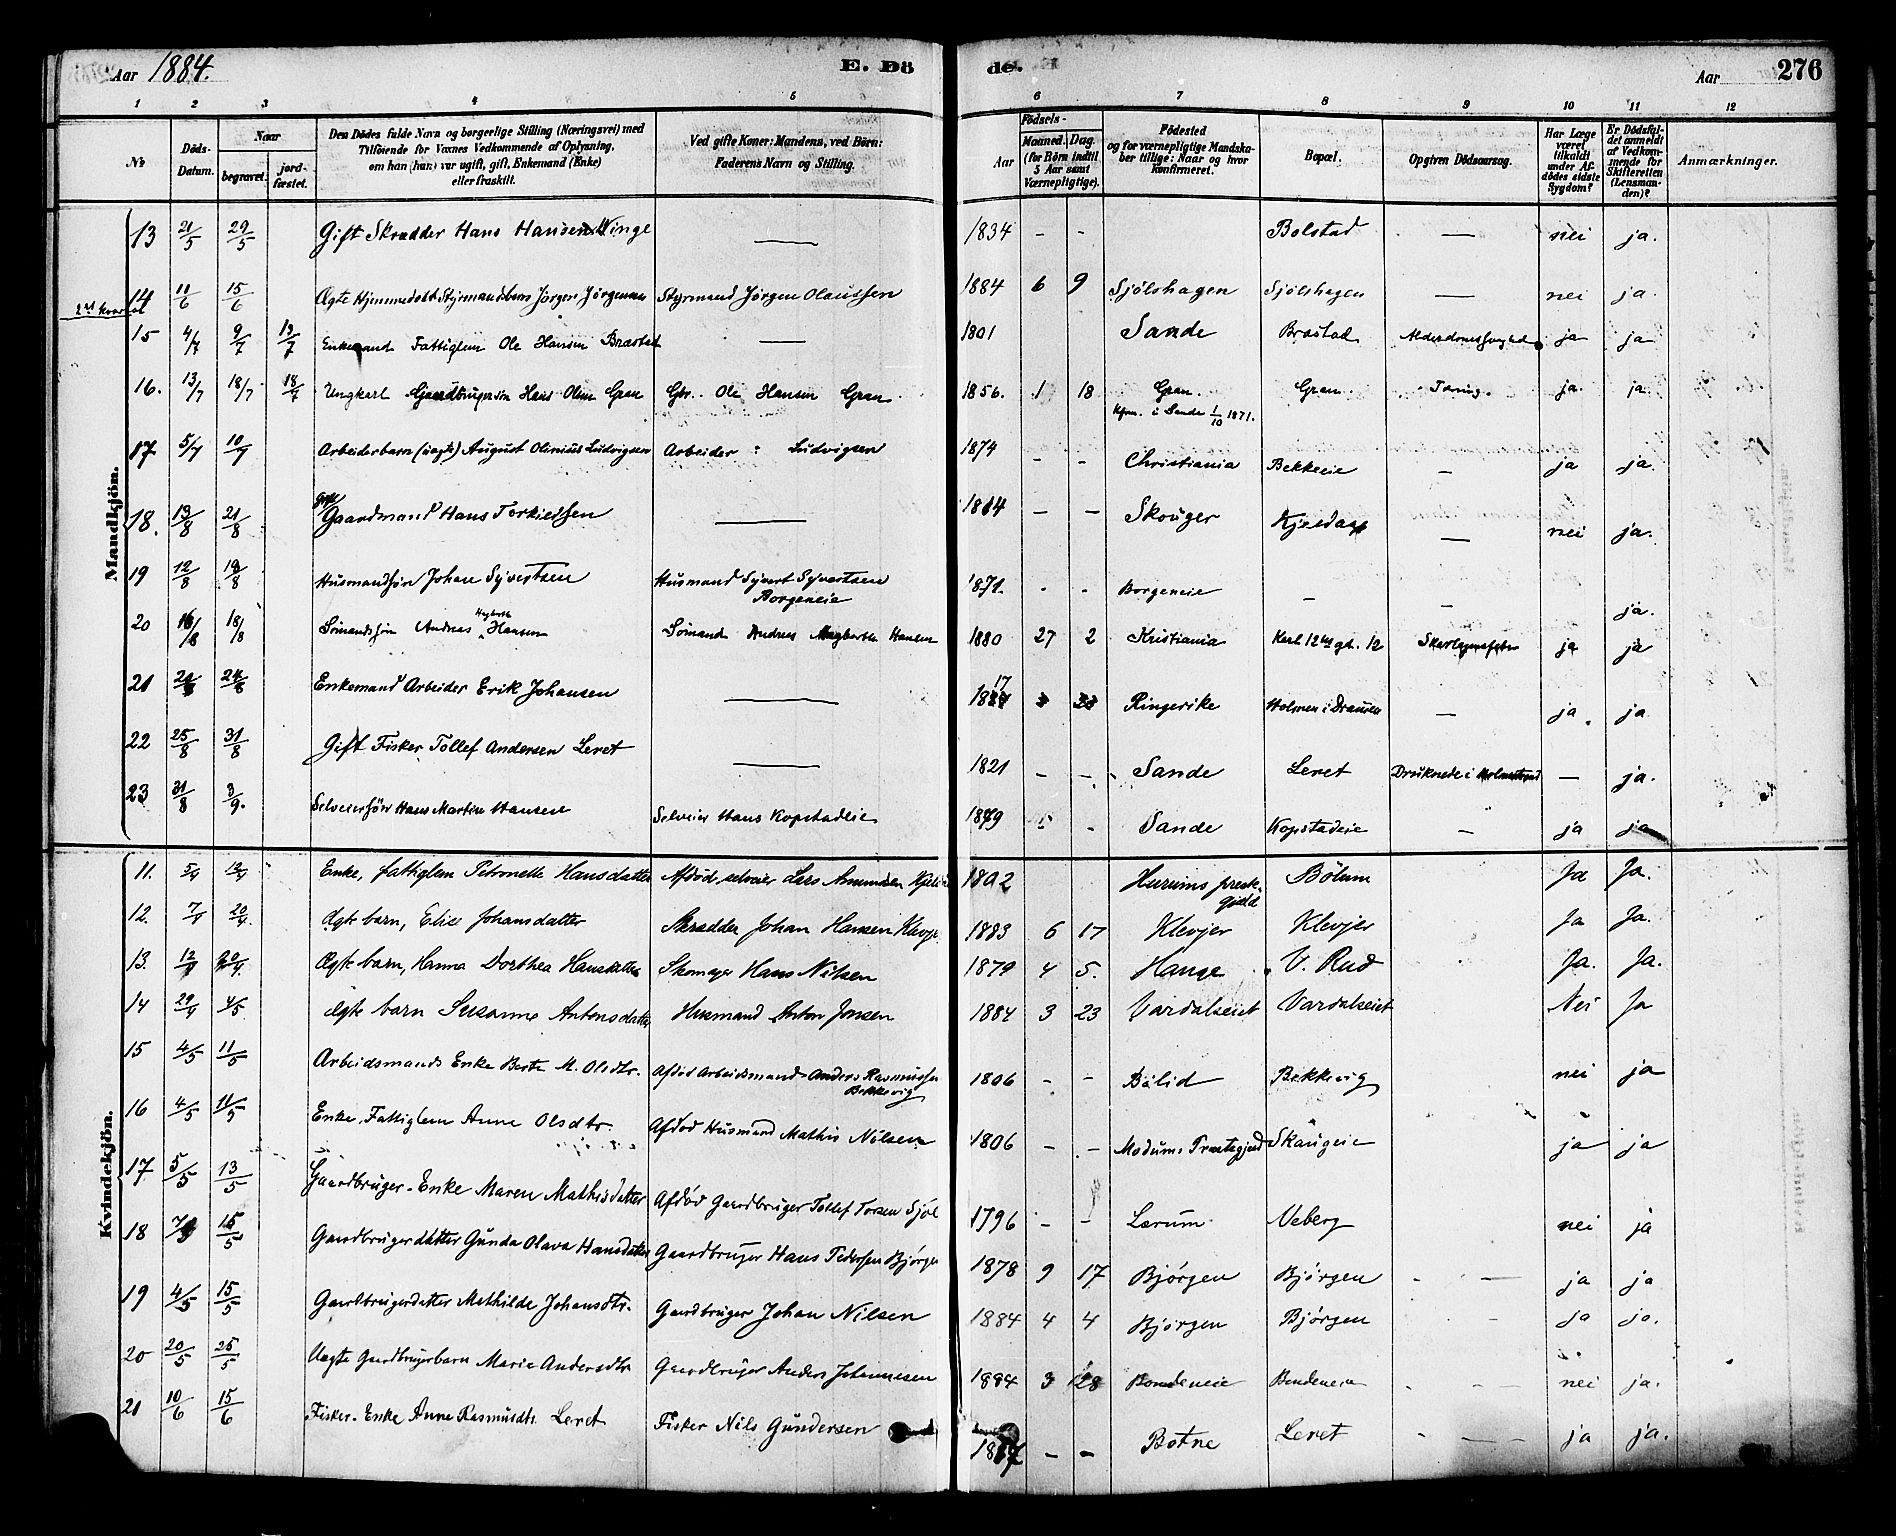 Aar 1884.
E. Dö
de.
Aar
276
1 2 3 4 5 6 7 8 9 10 11 12
No
Döds-
Datum.
Naar
begravet.
jord-
fæstet.
Den Dødes fulde Navn og borgerlige Stilling (Næringsvei) med
Tilføiende for Voxnes Vedkommende af Oplysning,
om han (hun) var ugift, gift, Enkemand (Enke)
eller fraskilt.
Ved gifte Koner: Mandens, ved Börn:
Faderens Navn og Stilling.
Födsels-
Aar
Maaned. Dag.
(for Börn indtil
5 Aar samt
Værnepligtige).
Födested
og for værnepligtige Mandska-
ber tillige: Naar og hvor
konfirmeret.
Bopæl.
Opgiven Dödsaarsag.
Har Læge
været
tilkaldt
under Af-
dødes sidste
Sygdom?
Er Dödsfal-
det anmeldt
af Vedkom-
mende for
Skifteretten
(Lensman-
den)?
Anmærkninger.
Mandkjön.
13 21/5 29/5 Gift Skrædder Hans Hansen Winge — 1834 - - Bolstad — nei ja.
14 11/6 15/6 Ægte Hjemmedøbt Styrmandsbarn Jörgen Jörgensen Styrmand Jörgen Olaussen 1884 6 9 Sjölshagen Sjölshagen — nei ja.
15 4/7 9/7 13/7 Enkemand Fattiglem Ole Hansen Bræstad — 1801 Sande Bræstad Alderdomssvaghed ja ja
16. 13/7 18/7 18/7 Ungkarl Gaardbrugersön Hans Olsen Gran Gbr. Ole Hansen Gran 1856. 1 18 Gran. Gran. Tæring. ja ja
Kfm. i Sande 1/10 1871.
17 5/7 10/7 Arbeiderbarn (uægte) August Olinius Ludvigsen Arbeider Ludvigsen 1874 - - Christiania Bekkeeie — ja ja.
18. 13/8 21/8 Gift Gaardmand Hans Torkildsen — 1814 - - Skouger — nei ja.
19 12/8 18/8 Husmandssön Johan Syvertsen Husmand Syvert Syvertsen Borgeneie 1871. - - Borgeneie — — ja.
20 16/8 18/8 Sömandssön Andreas Hansen Sömand Andreas Hansen 1880 27 2 Kristiania Karl 12tes gt. 12 Skarlagensfeber ja ja
21 24/8 Enkemand Arbeider Erik Johansen — 1817 Ringerike Holmen i Drammen — ja ja
22 25/8 31/8 Gift Fisker Tollef Andersen Leret — 1821 - - Sande Leret Druknede i Holmestrand — ja.
23 31/8 3/9. Selveiersön Hans Martin Hansen Selveier Hans Kopstadeie 1879 - Sande Kopstadeie — ja ja
Kvindekjön.
11. 5/4 13/4 Enke, fattiglem Petronelle Hansdatter Afdöd selveier Lars Amundsen 1802 Hurums prestegjeld Bölum Ja Ja.
12. 7/4 20/4. Ægte barn, Elise Johansdatter Skrædder Johan Hansen Klevje 1883 6 17 Klevjer Klevjer Ja Ja.
13. 12/4 20/4. Ægte barn, Hanna Dorthea Hansdatter Skomager Hans Nilsen 1879 4 5. Hange V. Rud Ja. Ja.
14 29/4 4/5 Ægte barn Susanne Antonsdatter Husmand Anton Jonsen 1884 3 23 Vardalseiet Vardalseiet Nei Ja
15 4/5 11/5 Arbeidsmands Enke Berte M. Olsdtr. Afdöd Arbeidsmand Anders Rasmussen Bekkevig 1806 - - Bölid Bekkevig nei ja
16 4/5 11/5 Enke, Fattiglem Anne Olsdtr. Afdöd Husmand Mathis Nilsen 1806 - - Modums Præstegjeld Skaugeie ja ja
17 5/5 13/5 Gaardbruger-Enke Maren Mathisdatter Afdöd Gaardbruger Tollef Torsen Sjöl 1796 - - Lerum Neberg nei ja
18 7/5 15/5 Gaardbrugerdatter Gunda Olava Hansdatter Gaardbruger Hans Pedersen Björgen 1878 9 17 Björgen Björgen - — ja ja
19 4/5 15/5 Gaardbrugerdatter Mathilde Johansdtr. Gaardbruger Johan Nilsen 1884 4 4 Björgen Björgen - ja ja.
20 20/5 25/5 Uægte Gaardbrugerbarn Marie Andersdtr Gaardbruger Anders Johannesen 1884 3 28 Bondeneie Bondeneie - - — nei ja.
21 10/6 15/6 Fisker-Enke Anne Rasmusdtr Leret Fisker Nils Gundersen 1817 - - Botne Leret - — ja ja.